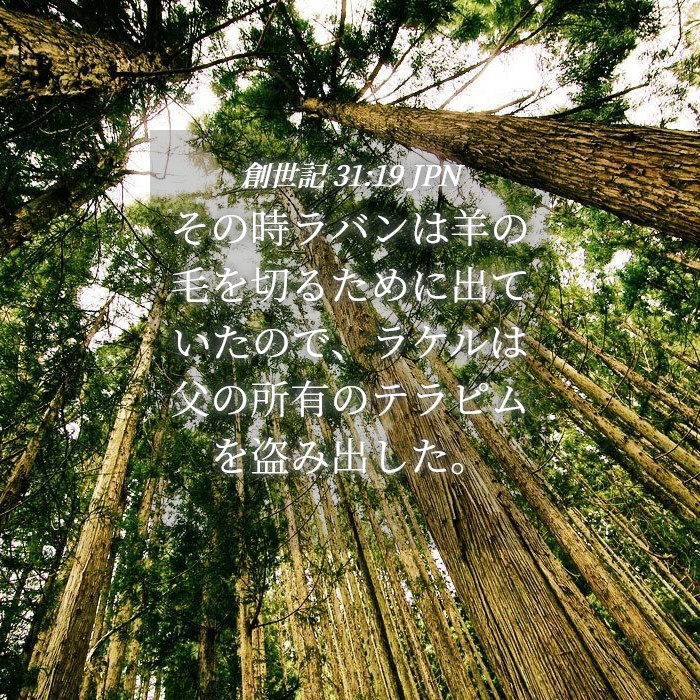 創世記 31:19 JPN
その時ラバンは羊の
毛を切るために出て
いたので、ラケルは
父の所有のテラピム
を盗み出した。